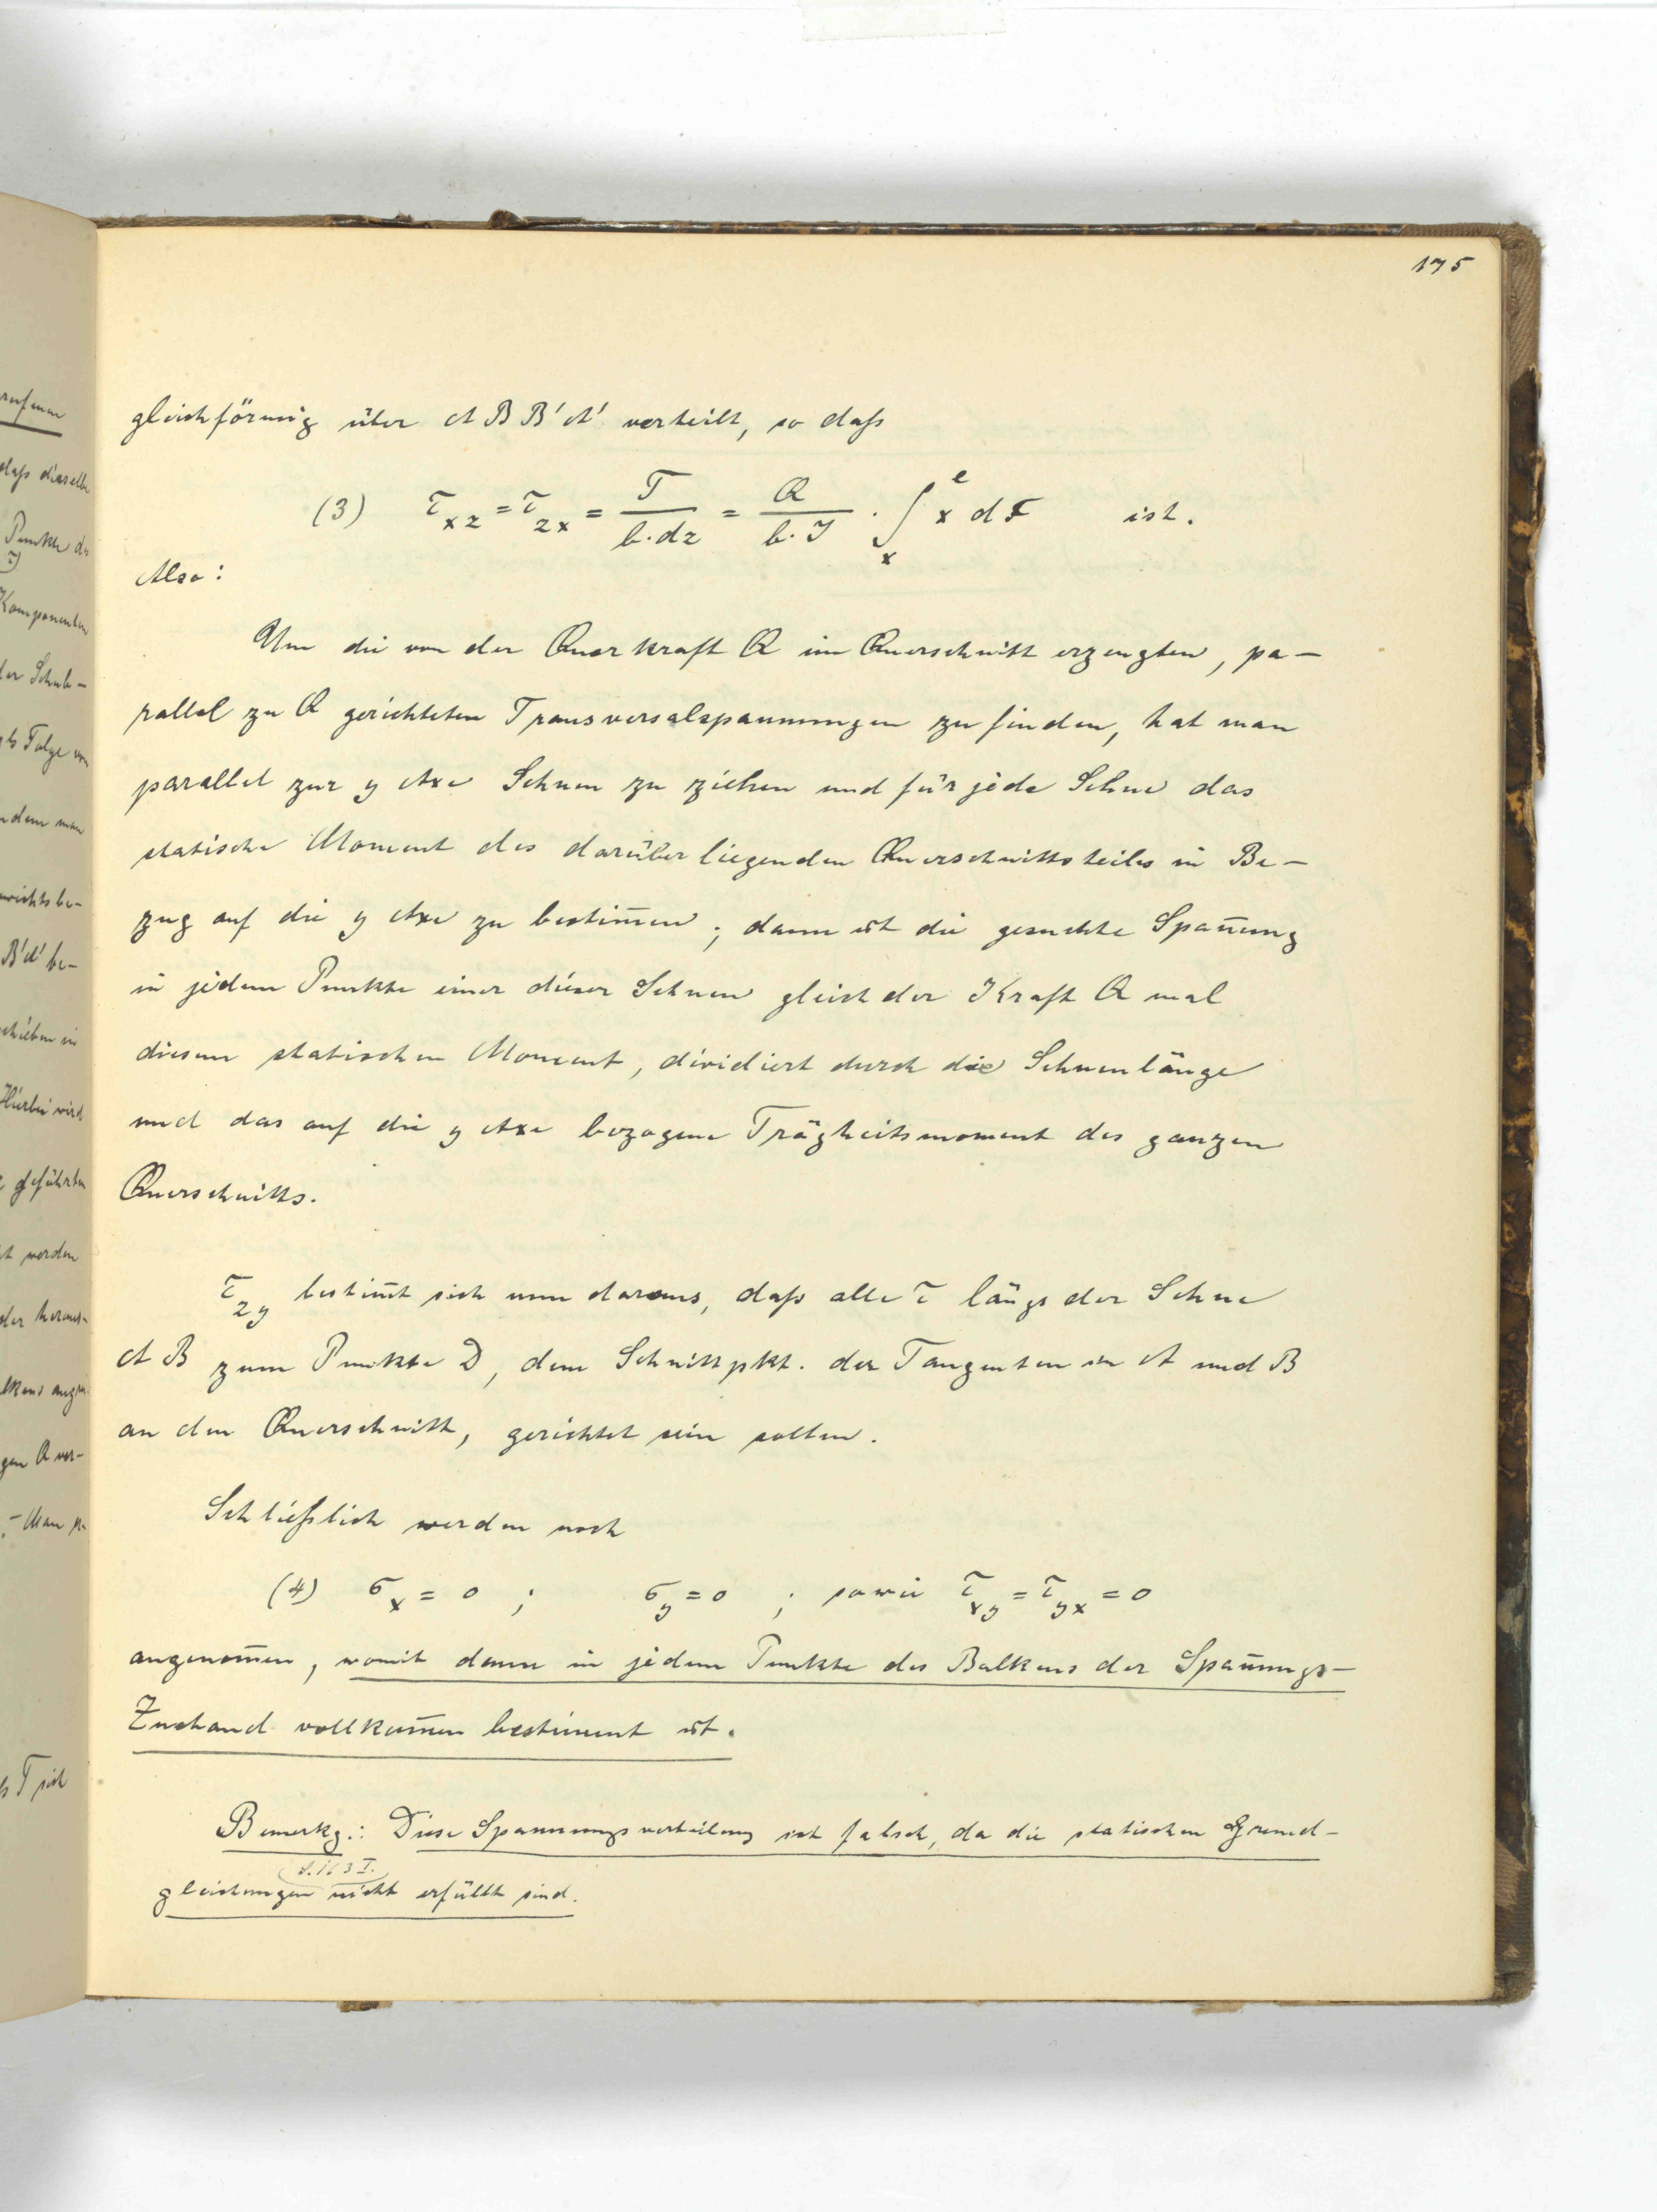 175
gleichförmig über A B B' A' verteilt, so daß
(3) τ_xz = τ_zx = T / b.dz = Q / b.J . ∫_x^e x dF ist.
Also:
Um die von der Querkraft Q im Querschnitt erzeugten, pa-
rallel zu Q gerichteten Transversalspannungen zu finden, hat man
parallel zur y Axe Sehnen zu ziehen und für jede Sehne das
statische Moment des darüber liegenden Querschnittsteiles in Be-
zug auf die y Axe zu bestim̄en; dann ist die gesuchte Span̄ung
in jedem Punkte einer dieser Sehnen gleich der Kraft Q mal
diesem statischen Moment, dividiert durch die Sehnenlänge
und das auf die y Axe bezogene Trägheitsmoment des ganzen
Querschnitts.
τ_zy bestim̄t sich nun daraus, daß alle τ längs der Sehne
A B zum Punkte D, dem Schnittpkt. der Tangenten in A und B
an den Querschnitt, gerichtet sein sollen.
Schließlich werden noch
(4) σ_x = 0 ; σ_y = 0 ; sowie τ_xy = τ_yx = 0
angenom̄en, womit dann in jedem Punkte des Balkens der Span̄ungs-
Zustand vollkom̄en bestimmt ist.
Bemerkg.: Diese Spannungsverteilung ist falsch, da die statischen Grund-
gleichungen nicht erfüllt sind.